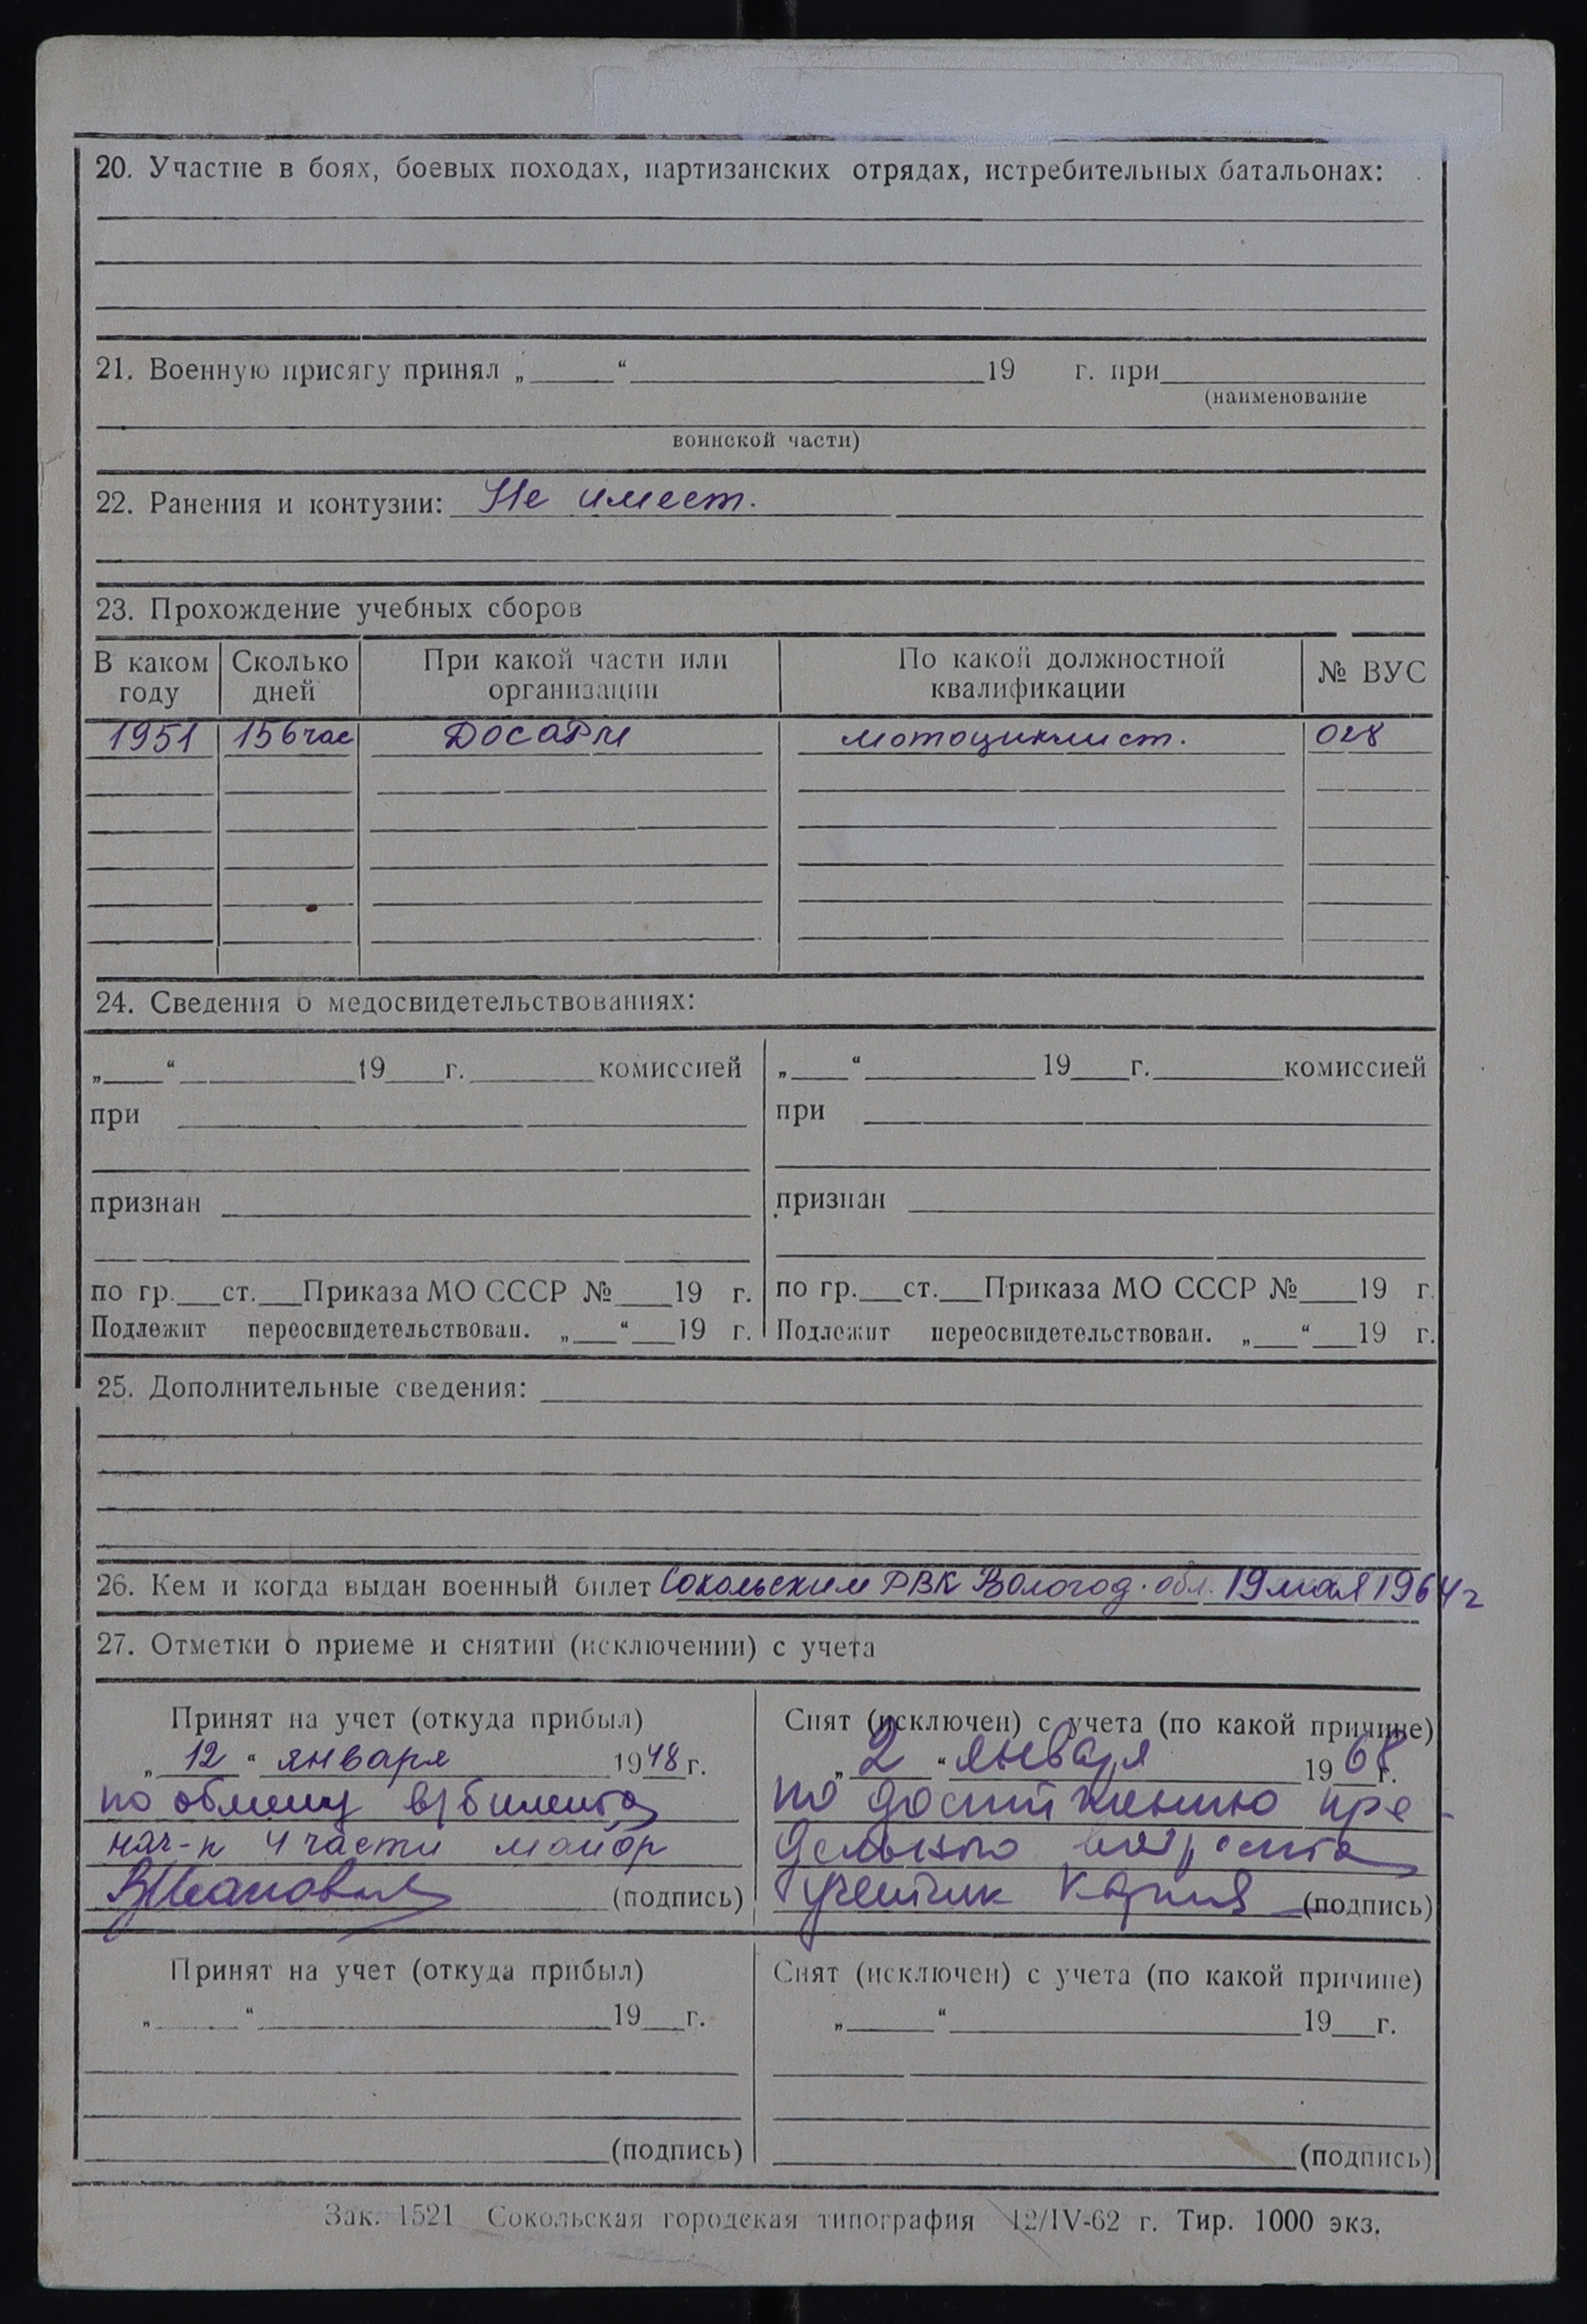 20. Участие в боях, боевых походах, партизанских отрядах, истребительных батальонах:
21. Военную присягу принял „ “ 19 г. при
(наименование
воинской части)
22. Ранения и контузии: Не имеет.
23. Прохождение учебных сборов
В каком году | Сколько дней | При какой части или организации | По какой должностной квалификации | № ВУС
1951 | 156 час | ДОСАРМ | мотоциклист. | 028
24. Сведения о медосвидетельствованиях:
„ “ 19 г. комиссией
при
признан
по гр. ст. Приказа МО СССР № 19 г.
Подлежит переосвидетельствован. „ “ 19 г.
„ “ 19 г. комиссией
при
признан
по гр. ст. Приказа МО СССР № 19 г.
Подлежит переосвидетельствован. „ “ 19 г.
25. Дополнительные сведения:
26. Кем и когда выдан военный билет Сокольским РВК Вологод. обл. 19 мая 1964 г
27. Отметки о приеме и снятии (исключении) с учета
Принят на учет (откуда прибыл)
„ 12 “ января 1948 г.
по обмену в/билета
нач-к 4 части майор
(подпись)
Снят (исключен) с учета (по какой причине)
„ 2 “ января 1968 г.
по достижению пре-
дельного возраста
(подпись)
Принят на учет (откуда прибыл)
„ “ 19 г.
(подпись)
Снят (исключен) с учета (по какой причине)
„ “ 19 г.
(подпись)
Зак. 1521 Сокольская городская типография 12/IV-62 г. Тир. 1000 экз.